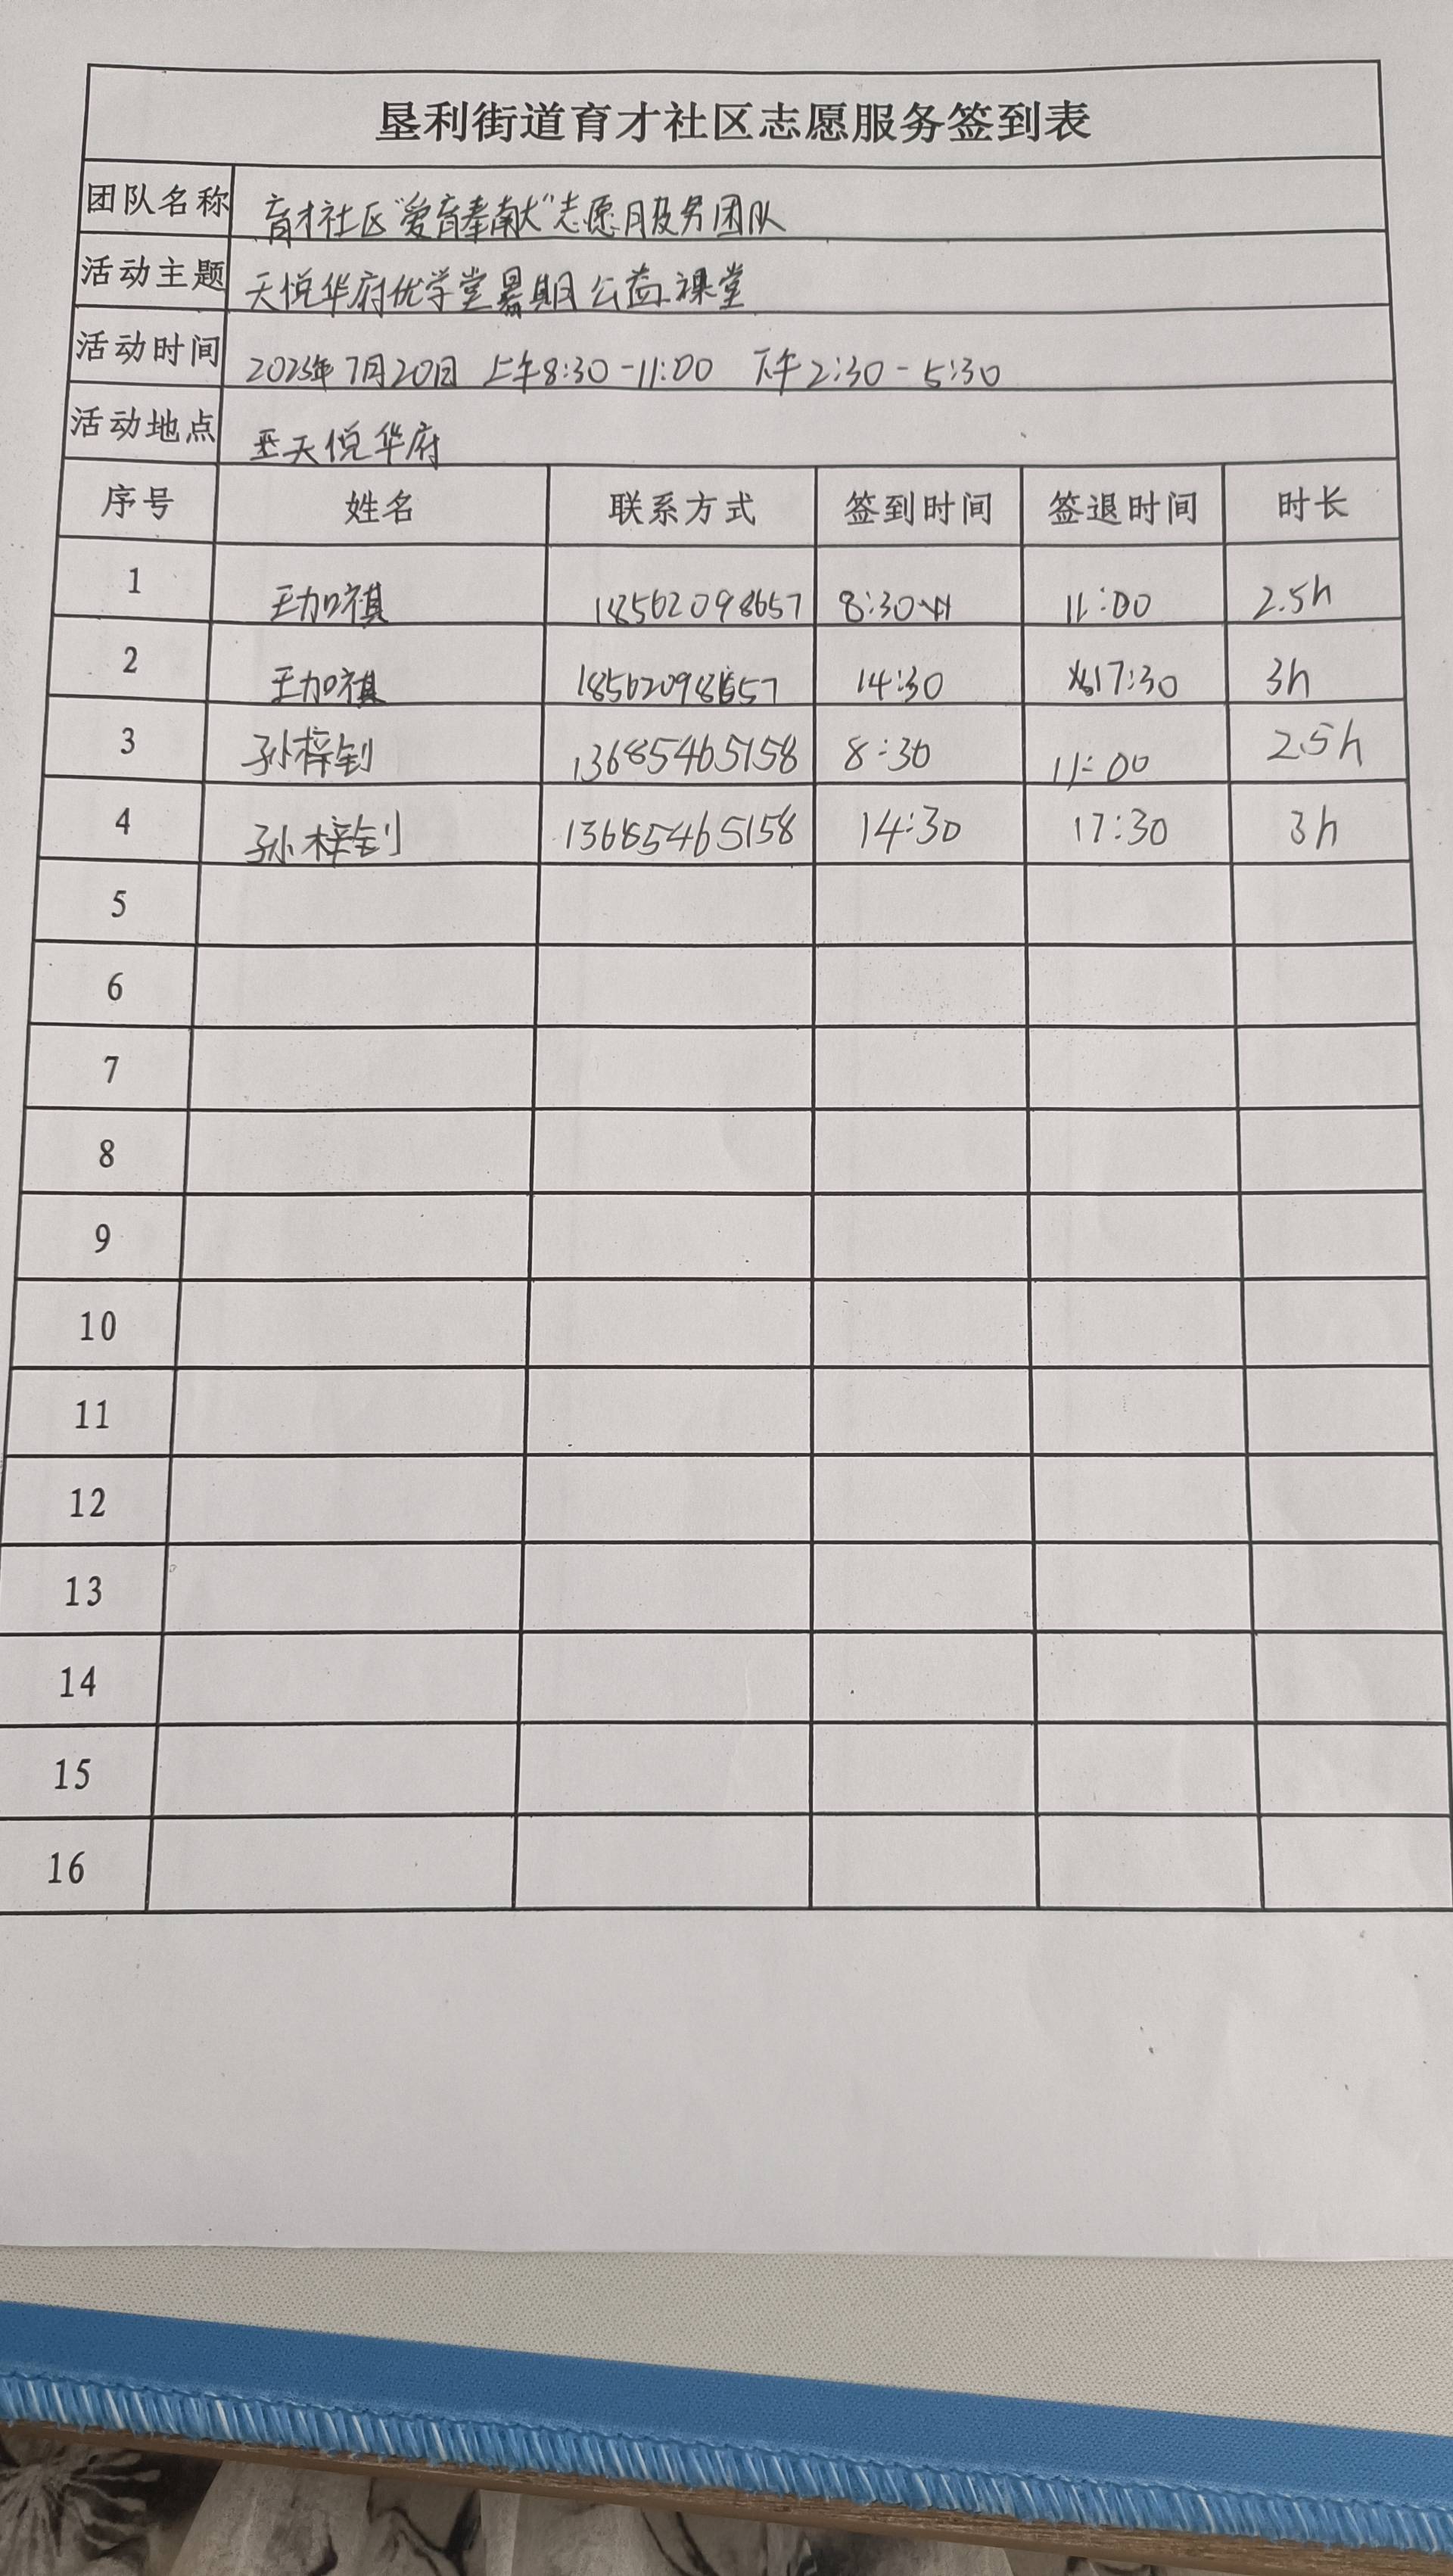 垦利街道育才社区志愿服务签到表
团队名称 育才社区“爱育奉献”志愿服务团队
活动主题 天悦华府优学堂暑期公益课堂
活动时间 2023年7月20日 上午8:30-11:00 下午2:30-5:30
活动地点 天悦华府
序号 姓名 联系方式 签到时间 签退时间 时长
1 王加祺 18562098657 8:30 11:00 2.5h
2 王加祺 18562098657 14:30 17:30 3h
3 孙梓钊 13685465158 8:30 11:00 2.5h
4 孙梓钊 13685465158 14:30 17:30 3h
5
6
7
8
9
10
11
12
13
14
15
16